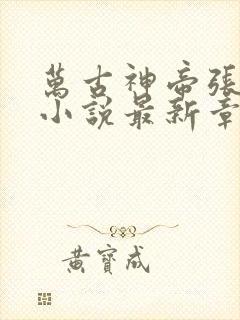 萬古神帝張
小說最新章
黃寶成